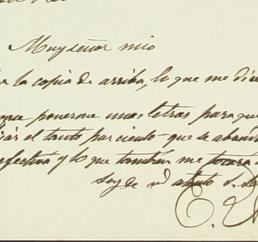 Muy señor mio
la copia de arriba, lo que me di
ponerme unas letras para que
el tanto por ciento que se aban
efectiva y lo que tambien me tocara
soy de vd atento s.